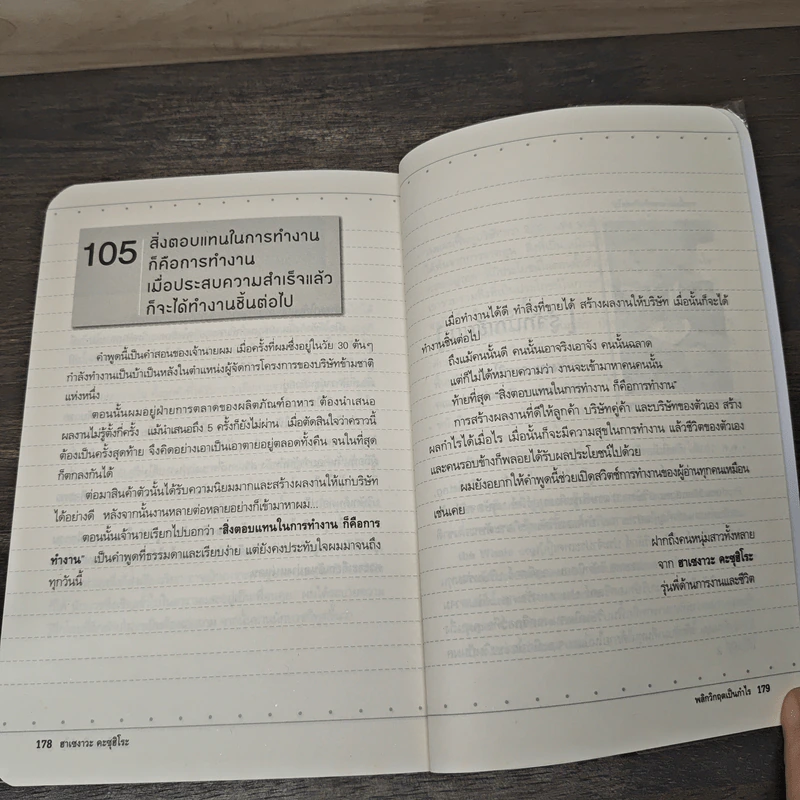 105
สิ่งตอบแทนในการทำงาน
ก็คือการทำงาน
เมื่อประสบความสำเร็จแล้ว
ก็จะได้ทำงานชิ้นต่อไป
คำพูดนี้เป็นคำสอนของเจ้านายผม เมื่อครั้งที่ผมซึ่งอยู่ในวัย 30 ต้นๆ
กำลังทำงานเป็นบ้าเป็นหลังในตำแหน่งผู้จัดการโครงการของบริษัทข้ามชาติ
แห่งหนึ่ง
ตอนนั้นผมอยู่ฝ่ายการตลาดของผลิตภัณฑ์อาหาร ต้องนำเสนอ
ผลงานไม่รู้ตั้งกี่ครั้ง แม้นำเสนอถึง 5 ครั้งก็ยังไม่ผ่าน เมื่อตัดสินใจว่าคราวนี้
ต้องเป็นครั้งสุดท้าย จึงคิดอย่างเอาเป็นเอาตายอยู่ตลอดทั้งคืน จนในที่สุด
ก็ตกลงกันได้
ต่อมาสินค้าตัวนั้นได้รับความนิยมมากและสร้างผลงานให้แก่บริษัท
ได้อย่างดี หลังจากนั้นงานหลายต่อหลายอย่างก็เข้ามาหาผม...
ตอนนั้นเจ้านายเรียกไปบอกว่า "สิ่งตอบแทนในการทำงาน ก็คือการ
ทำงาน" เป็นคำพูดที่ธรรมดาและเรียบง่าย แต่ยังคงประทับใจผมมาจนถึง
ทุกวันนี้
178 ฮาเซงาวะ คะซุฮิโระ
เมื่อทำงานได้ดี ทำสิ่งที่ขายได้ สร้างผลงานให้บริษัท เมื่อนั้นก็จะได้
ทำงานชิ้นต่อไป
ถึงแม้คนนั้นดี คนนั้นเอาจริงเอาจัง คนนั้นฉลาด
แต่ก็ไม่ได้หมายความว่า งานจะเข้ามาหาคนคนนั้น
ท้ายที่สุด "สิ่งตอบแทนในการทำงาน ก็คือการทำงาน"
การสร้างผลงานที่ดีให้ลูกค้า บริษัทคู่ค้า และบริษัทของตัวเอง สร้าง
ผลกำไรได้เมื่อไร เมื่อนั้นก็จะมีความสุขในการทำงาน แล้วชีวิตของตัวเอง
และคนรอบข้างก็พลอยได้รับผลประโยชน์ไปด้วย
ผมยังอยากให้คำพูดนี้ช่วยเปิดสวิตช์การทำงานของผู้อ่านทุกคนเหมือน
เช่นเคย
ฝากถึงคนหนุ่มสาวทั้งหลาย
จาก ฮาเซงาวะ คะซุฮิโระ
รุ่นพี่ด้านการงานและชีวิต
พลิกวิกฤตเป็นกำไร 179